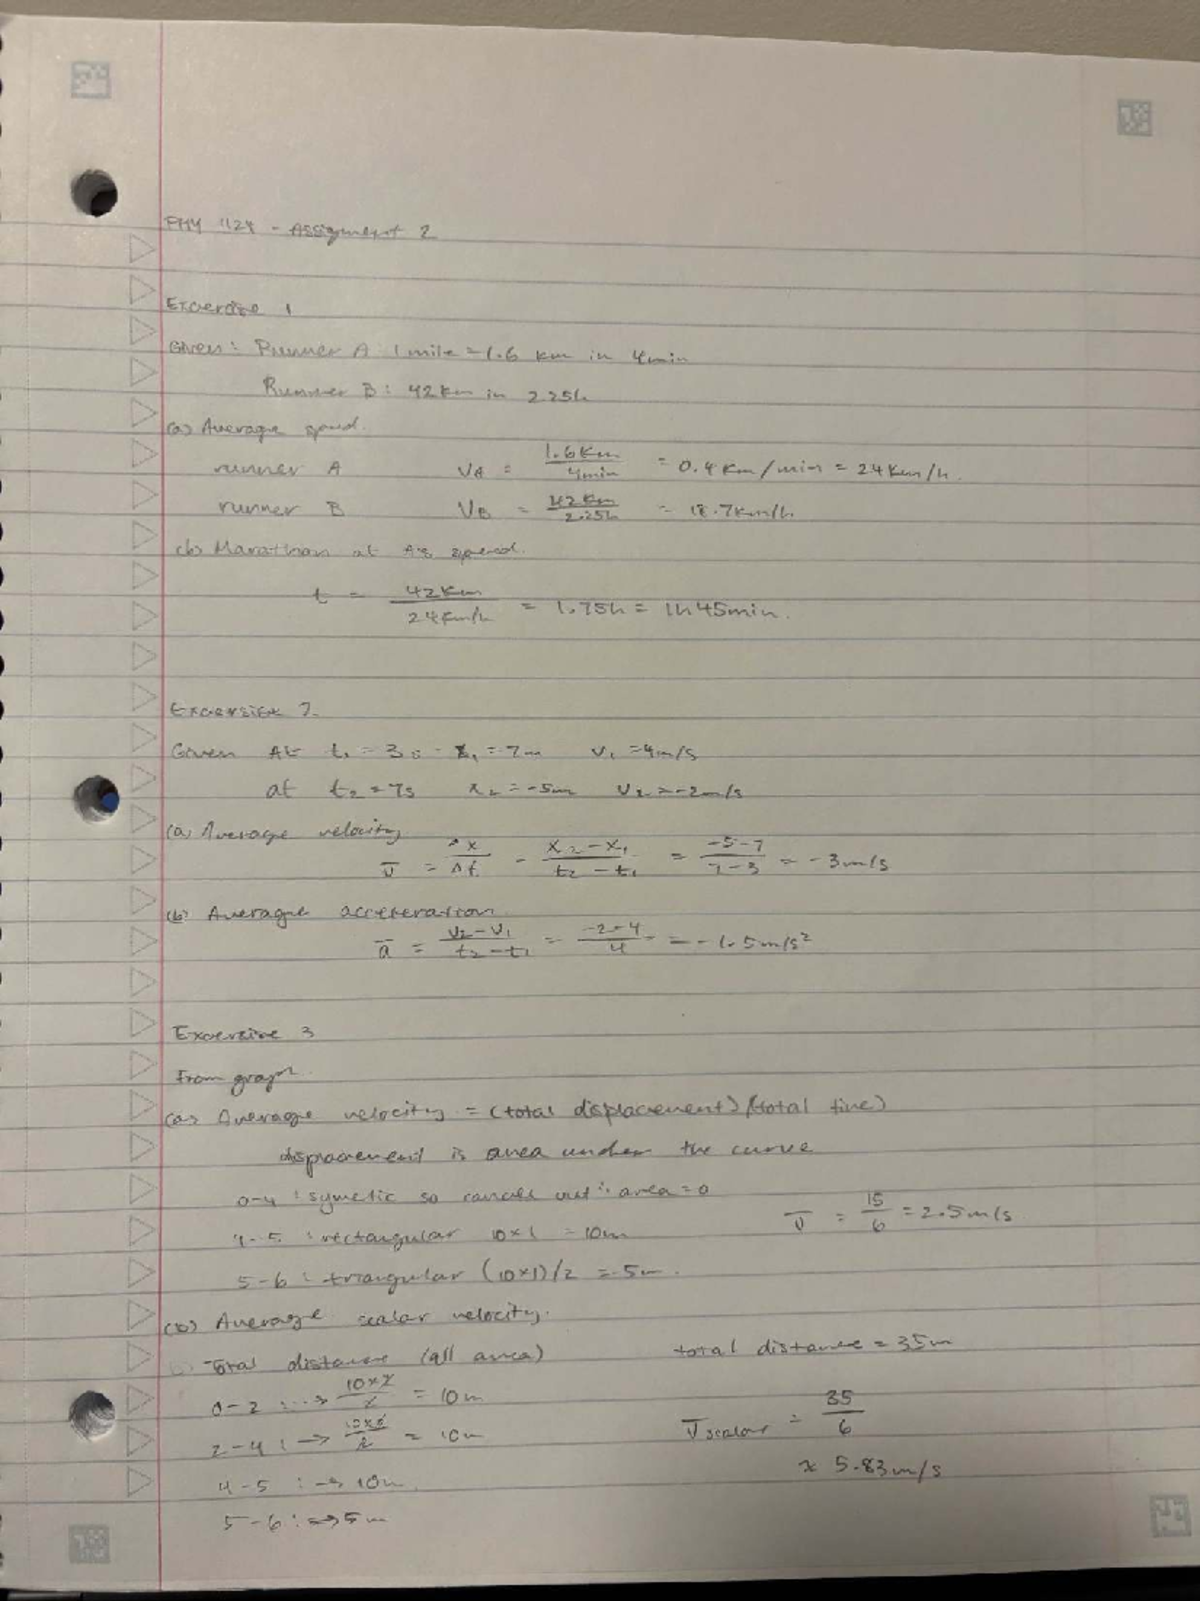 PHY 1124 - Assignment 2
Excercise 1
Given: Runner A 1 mile = 1.6 km in 4min
Runner B: 42km in 2.25h
(a) Average speed.
runner A VA = 1.6km / 4min = 0.4 km/min = 24 km/h.
runner B VB = 42km / 2.25h = 18.7km/h.
(b) Marathon at A's speed.
t = 42km / 24km/h = 1.75h = 1h45min.
Given At t₁ = 3s x₁ = 7m v₁ = 4m/s
at t₂ = 7s x₂ = -5m v₂ = -2m/s
(a) Average velocity
v̄ = Δx / Δt = x₂ - x₁ / t₂ - t₁ = -5-7 / 7-3 = -3m/s
(b) Average acceleration
ā = v₂-v₁ / t₂-t₁ = -2-4 / 4 = -1.5m/s²
From graph.
(a) Average velocity = (total displacement)/(total time)
displacement is area under the curve
0-4 : symetic so cancels out ∴ area = 0
4-5 : rectangular 10×1 = 10m
v̄ = 15 / 6 = 2.5m/s
5-6 : triangular (10×1)/2 = 5m.
(b) Average scalar velocity.
Total distance (all area) total distance = 35m
0-2 : → 10×2 / 2 = 10m
2-4 : → / 2 = 10m
v̄ scalar = 35 / 6
4-5 : → 10m.
≈ 5.83m/s
5-6 : → 5m